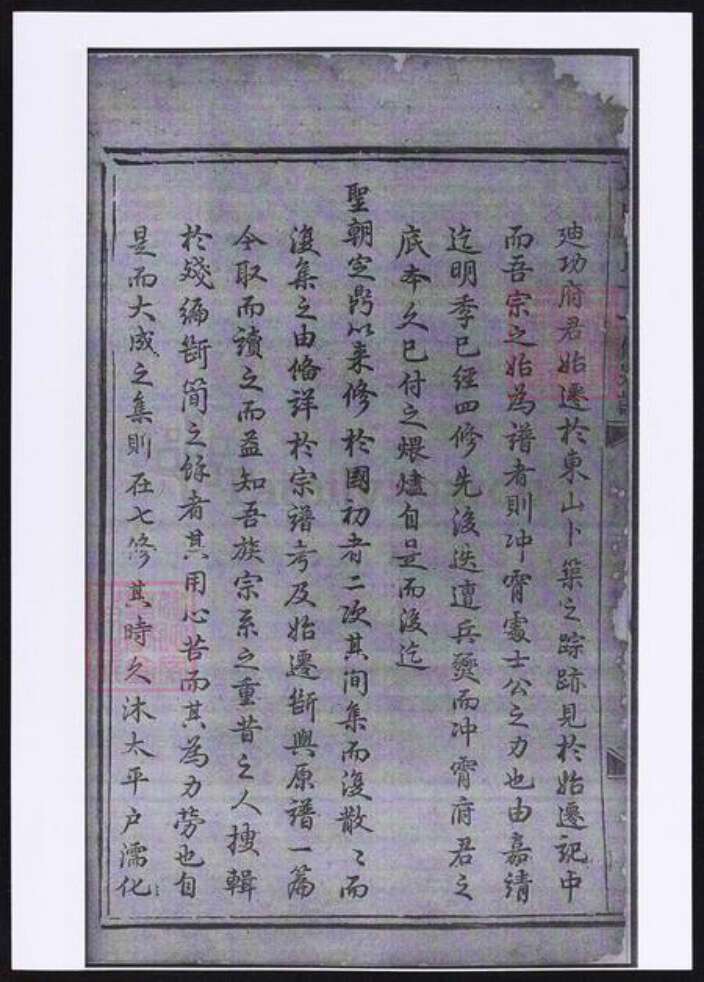 廸功府君始遷於東山卜築之踪跡見於始遷記中
而吾宗之始為譜者則冲霄處士公之力也由嘉靖
迄明季已經四修先後迭遭兵燹而冲霄府君之
底本久已付之煨燼自是而後迄
聖朝定鼎以来修於國初者二次其间集而復散〻而
復集之由俻詳於宗譜考及始遷斷與原譜一篇
今取而讀之而益知吾族宗系之重昔之人搜輯
於殘編斷简之餘者其用心苦而其為力勞也自
是而大成之集則在七修其時久沐太平户濡化